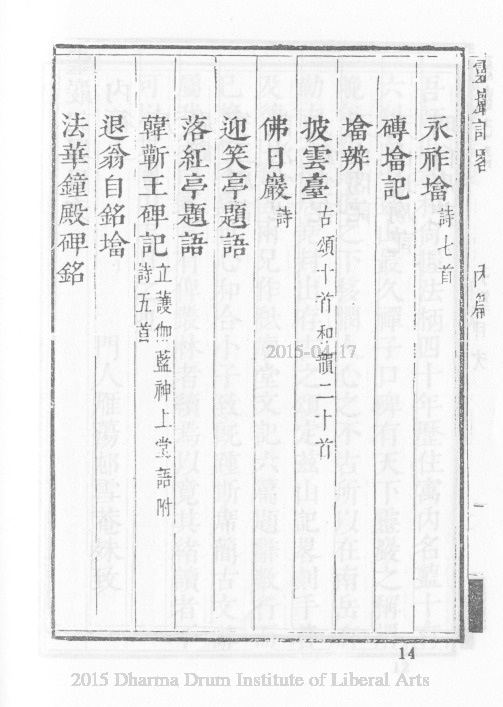 靈巖記畧 內篇 一
永祚墖 詩七首
磚墖記
墖辨
披雲臺 古頌十首和韻二十首
佛日巖 詩
迎笑亭題語
落紅亭題語
韓蘄王碑記 立護伽藍神上堂語附 詩五首
退翁自銘墖
法華鐘殿碑銘
14
2015-04-17
2015 Dharma Drum Institute of Liberal Arts